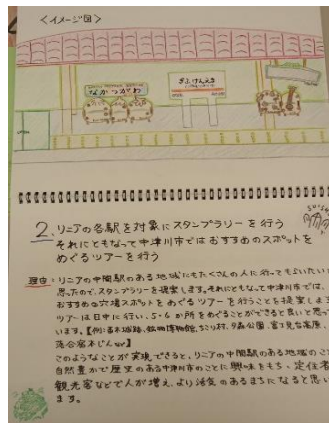 <イメージ図>
なかつがわ
ぎふけんえき
2. リニアの各駅を対象にスタンプラリーを行う
それにともなって中津川市ではおすすめのスポットを
めぐるツアーを行う
理由:リニアの中間駅のある地域にもたくさんの人に行ってもらいたいと
思ったので、スタンプラリーを提案します。それにともなって中津川市では、
おすすめの穴場スポットをめぐるツアーを行うことを提案しま
ツアーは日中に行い、5・6か所をめぐることができると良いと思って
います。【例:苗木城跡、鉱物博物館、ちこり村、夕森公園、富士見台高原、
落合宿本じんなど】
このようなことが実現できると、リニアの中間駅のある地域のこ
自然豊かで歴史のある中津川市のことに興味をもち、定住者
観光客などで人が増え、より活気のあるまちになると思い
ます。